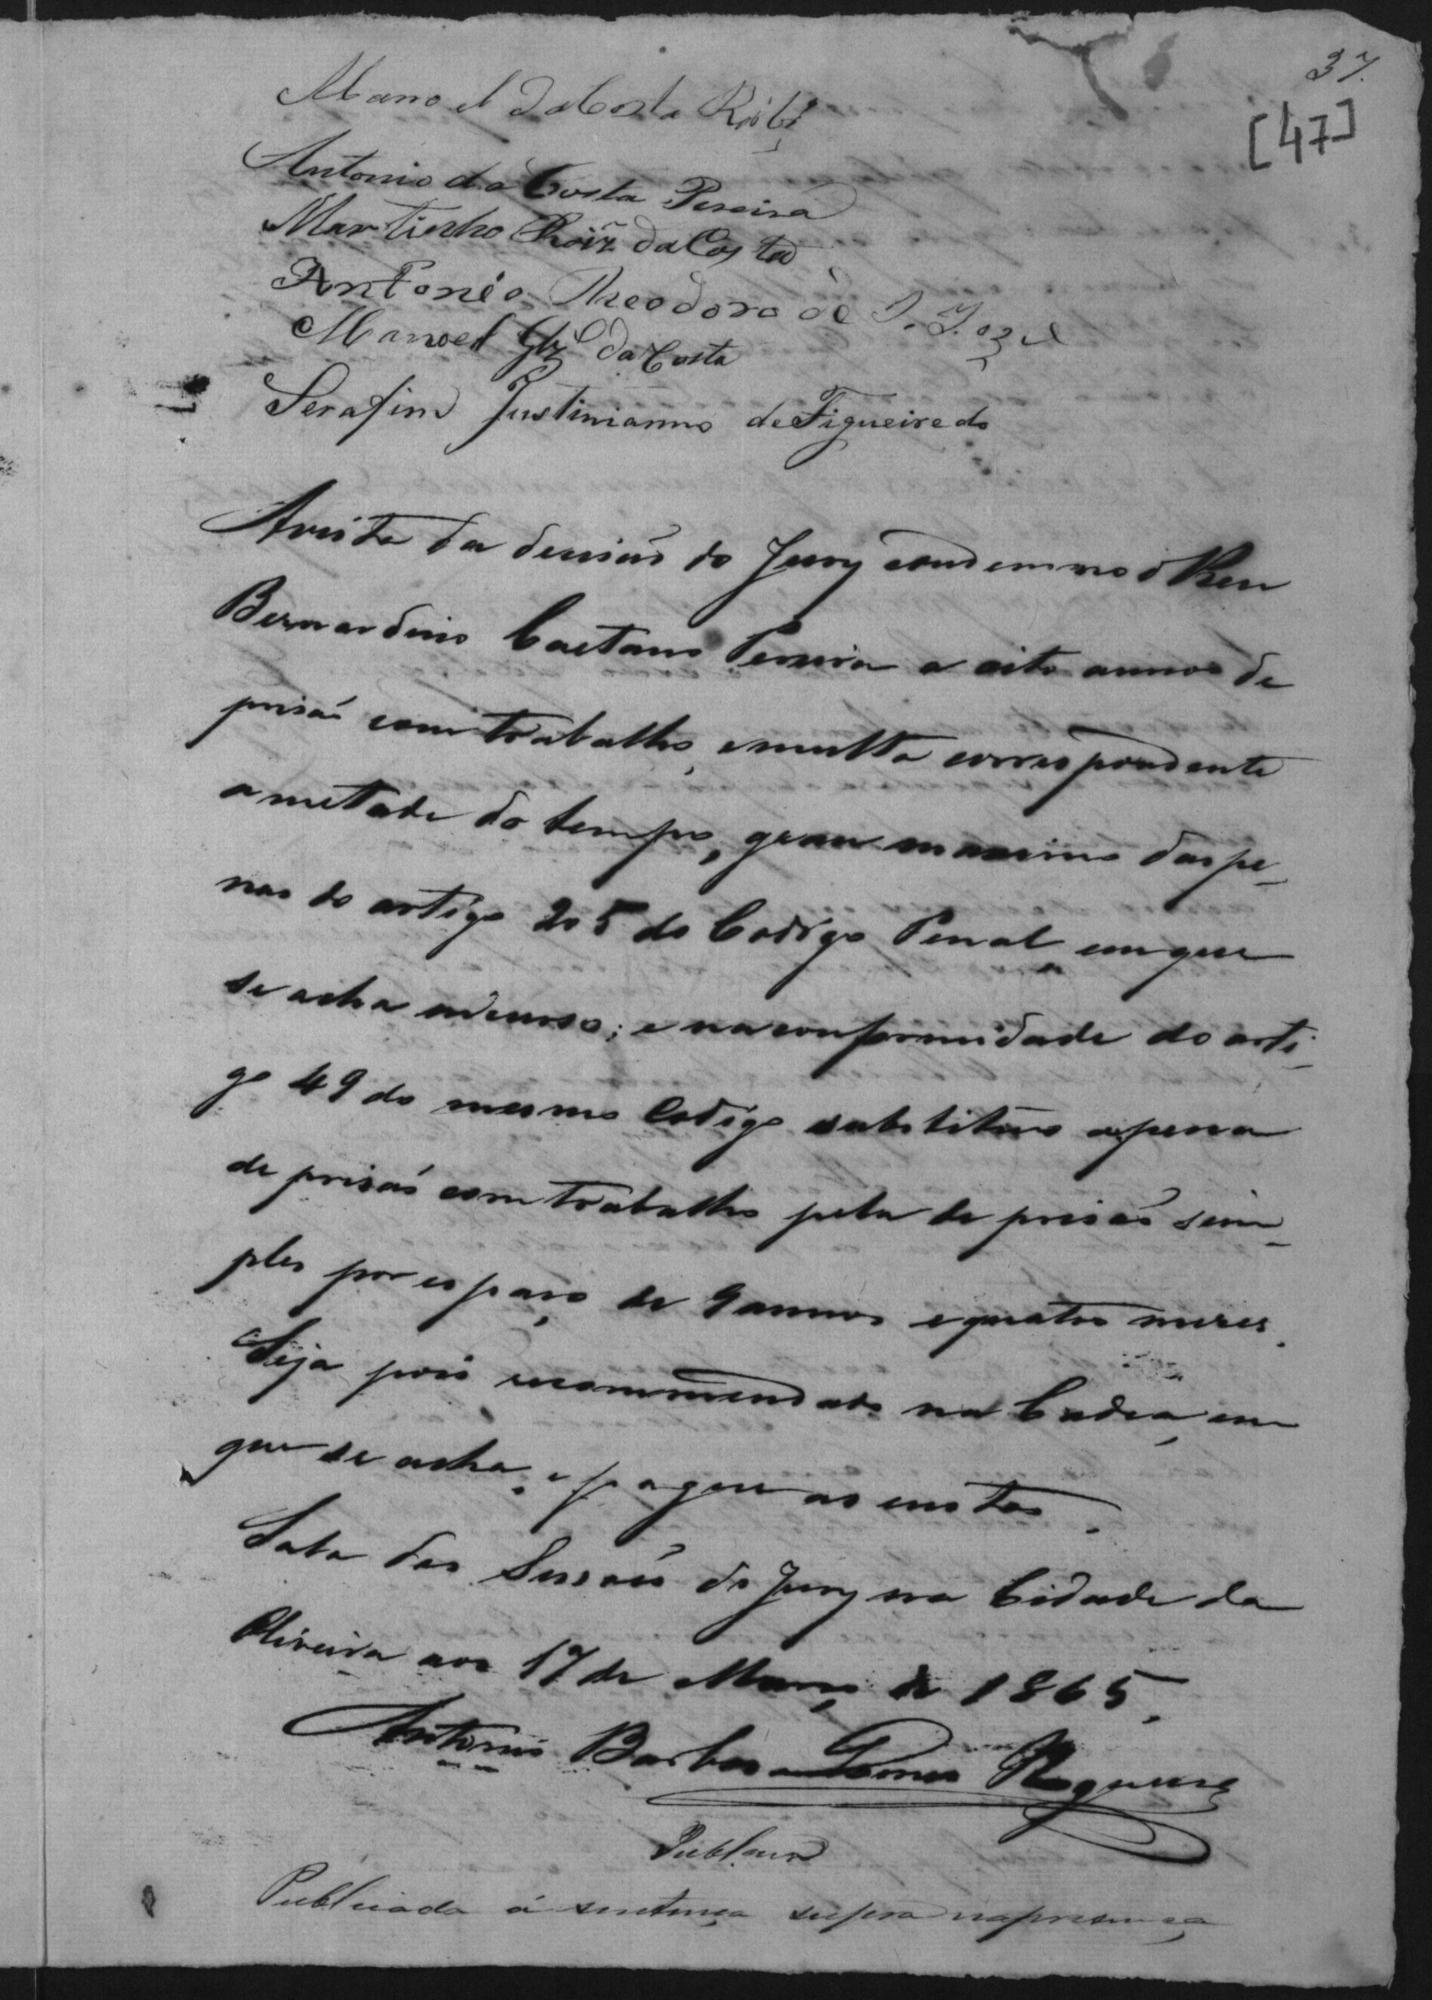 37.
[47]
Manoel da Costa Ribr.º
Antonio da Costa Pereira
Martinho Roiz da Costa
Antonio Theodoro de S. Jozé
Manoel Glz da Costa
Serafim Justinianno de Figueiredo
Avista da decisaõ do Jury condemno o Reu
Bernardino Caetano Pereira a oito annos de
prisaõ com trabalho, e multa correspondente
a metade do tempo, grau maximo das pe-
nas do artigo 205 do Codigo Penal, em que
se acha incurso; e na conformidade do arti-
go 49 do mesmo Codigo substituo a pena
de prisaõ com trabalho pela de prisaõ sim-
ples por espaço de 9 annos e quatro meses.
Seja pois recommendado na Cadea, em
que se acha, e pague as custas.
Sala das Sessoẽs do Jury na Cidade da
Oliveira aos 17 de Março de 1865.
Antonio Barbosa Gomes Nogueira
Publicaçaõ
Publicada á sentença supra na presença